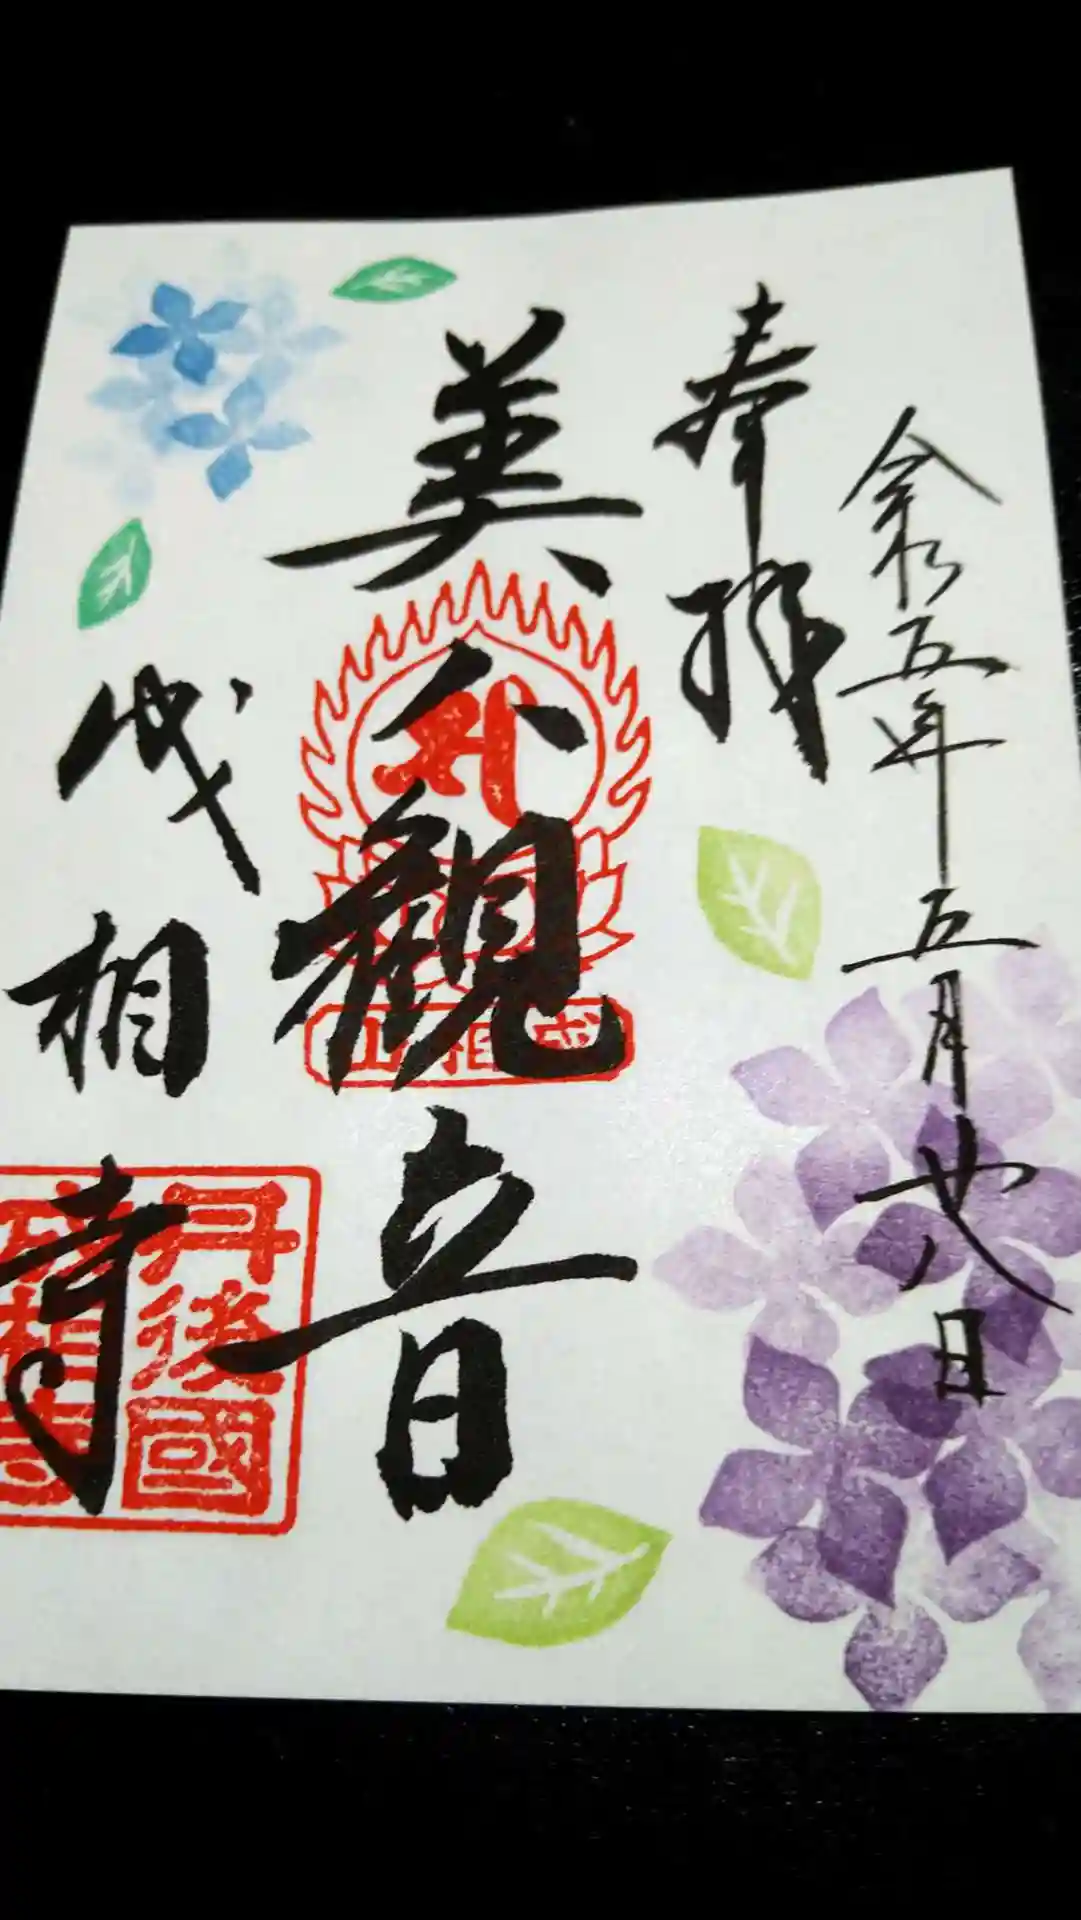 令和五年五月廿八日
奉拝
美人観音
成相山
成相寺
丹後國
成相寺